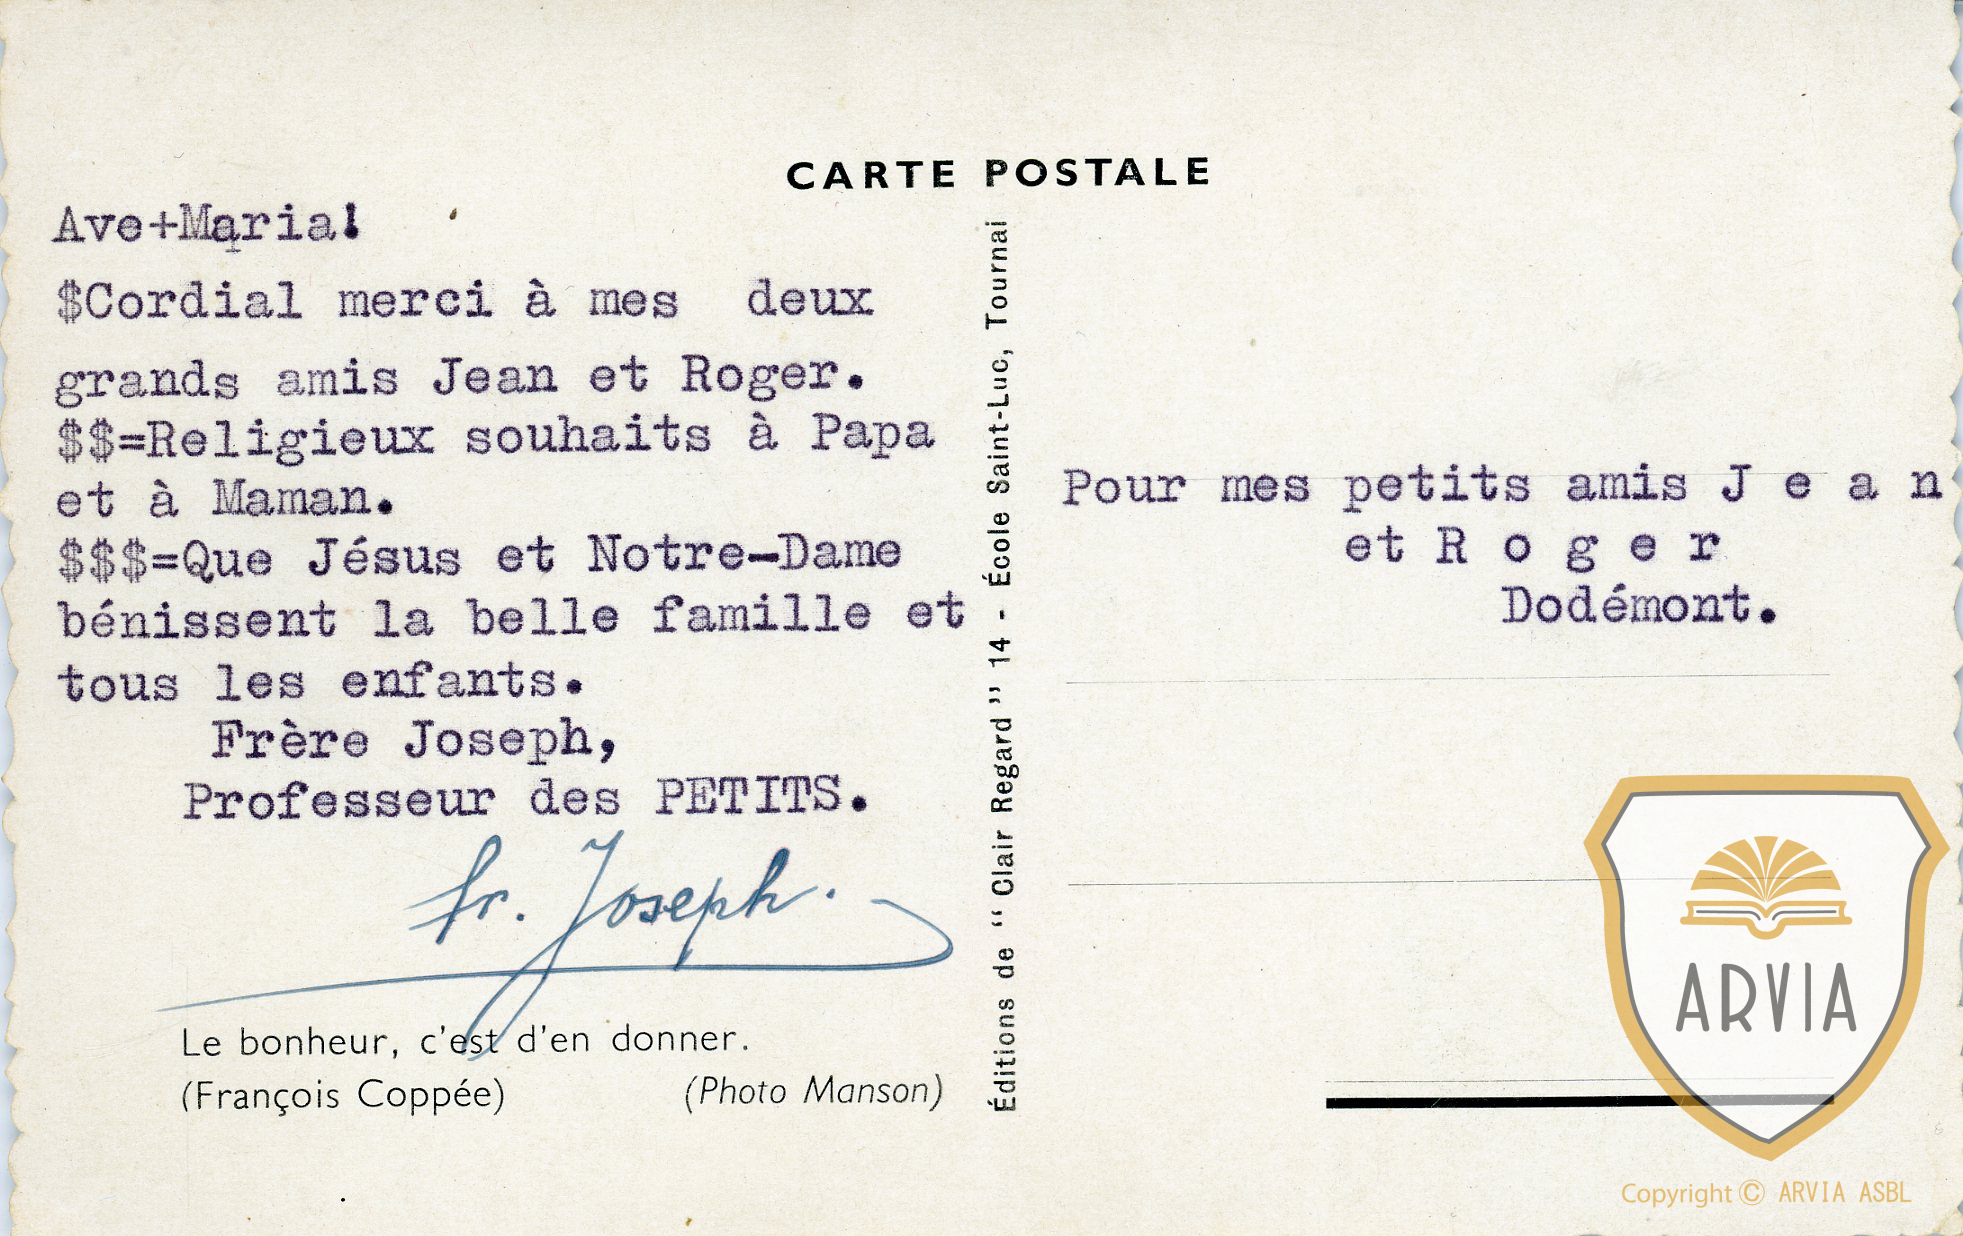 CARTE POSTALE
Ave+Maria!
$Cordial merci à mes deux
grands amis Jean et Roger.
$$=Religieux souhaits à Papa
et à Maman.
$$$=Que Jésus et Notre-Dame
bénissent la belle famille et
tous les enfants.
Frère Joseph,
Professeur des PETITS.
fr. Joseph.
Le bonheur, c'est d'en donner.
(François Coppée) (Photo Manson)
Éditions de “ Clair Regard ” 14 - École Saint-Luc, Tournai
Pour mes petits amis J e a n
et R o g e r
Dodémont.
ARVIA
Copyright © ARVIA ASBL